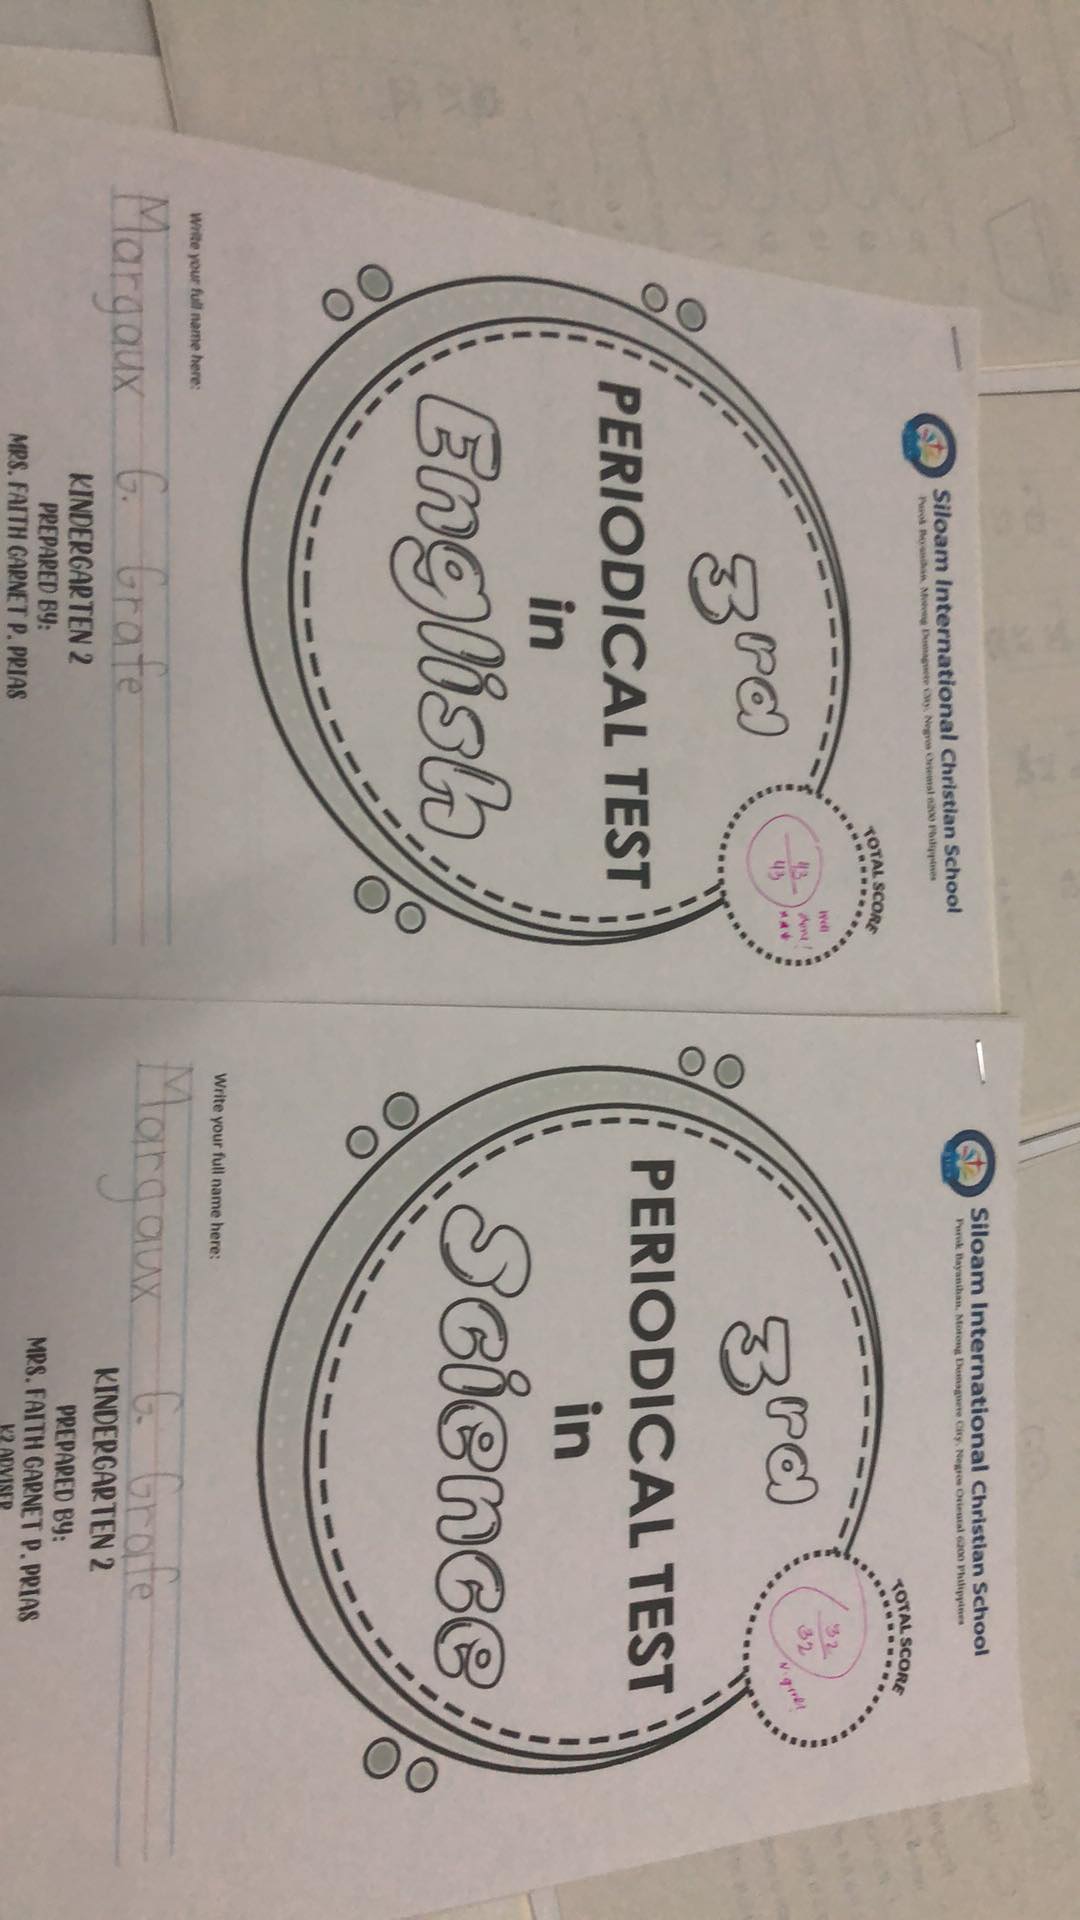 Siloam International Christian School
Purok Bayanihan, Motong Dumaguete City, Negros Oriental 6200 Philippines
TOTAL SCORE
43
43
Well
done!
3rd
PERIODICAL TEST
in
English
Write your full name here:
Margaux G. Grafe
KINDERGARTEN 2
PREPARED BY:
MRS. FAITH GARNET P. PRIAS
Siloam International Christian School
Purok Bayanihan, Motong Dumaguete City, Negros Oriental 6200 Philippines
TOTAL SCORE
32
32
3rd
PERIODICAL TEST
in
Science
Write your full name here:
Margaux G. Grafe
KINDERGARTEN 2
PREPARED BY:
MRS. FAITH GARNET P. PRIAS
K2 ADVISER